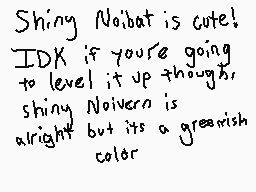 Shiny Noibat is cute!
IDK if you're going
to level it up though,
shiny Noivern is
alright but its a greenish
color